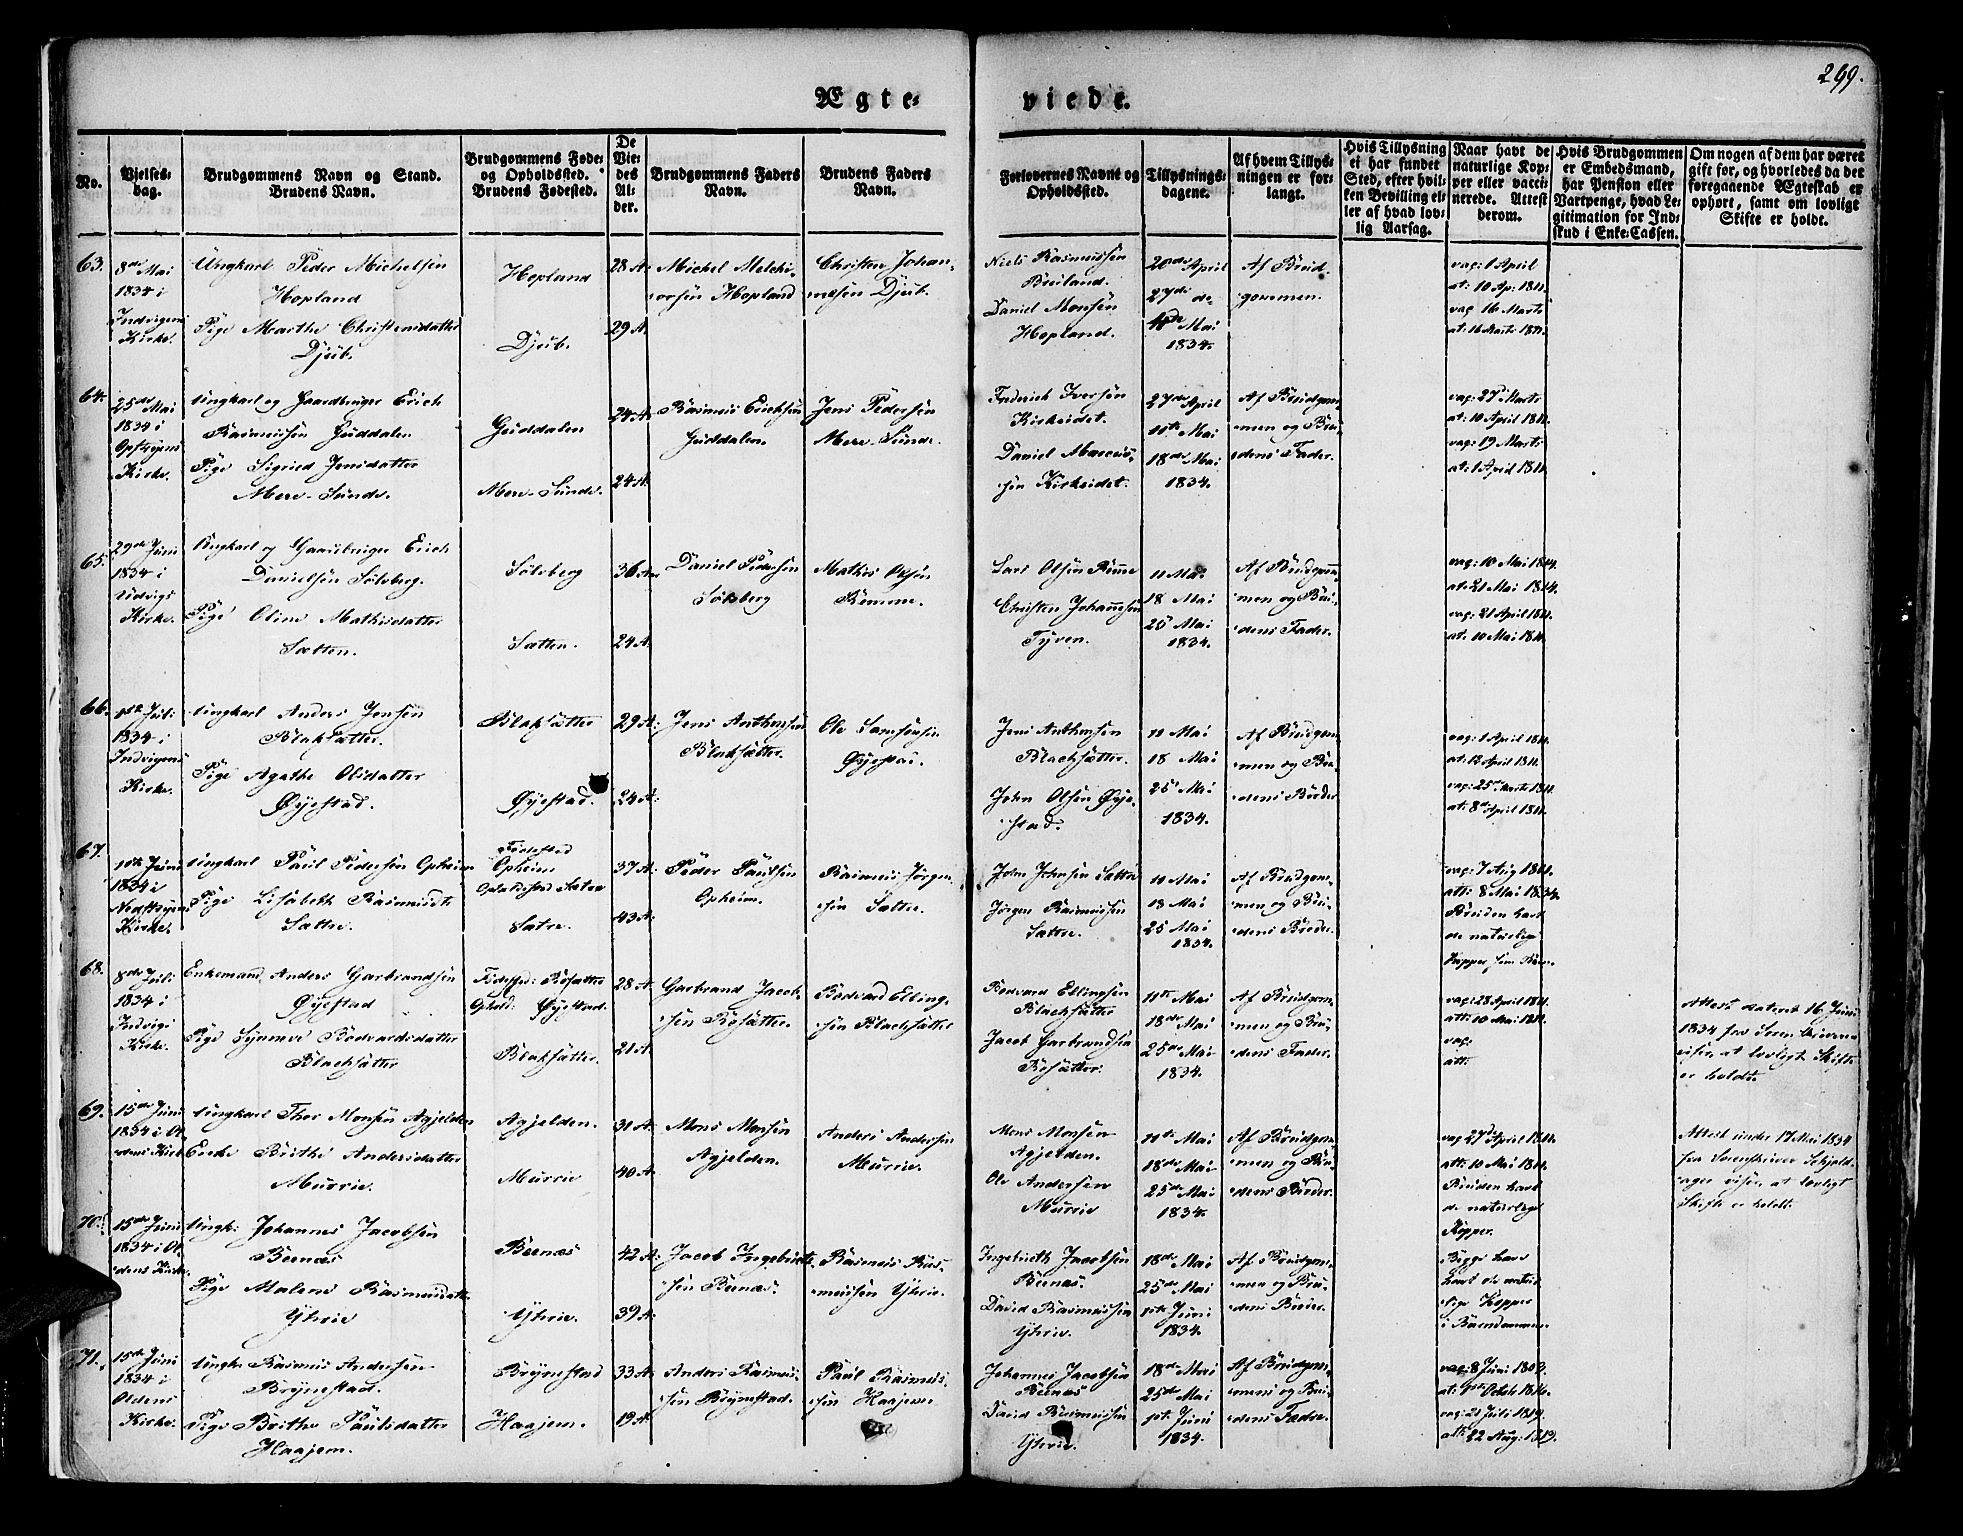 Ægte-
viede.
299.
No.
Vielses-
dag.
Brudgommens Navn og Stand.
Brudens Navn.
Brudgommens Føde-
og Opholdssted.
Brudens Fødested.
De
Vie-
des
Al-
der.
Brudgommens Faders
Navn.
Brudens Faders
Navn.
Forlovernes Navne og
Opholdssted.
Tillysnings-
dagene.
Af hvem Tillys-
ningen er for-
langt.
Hvis Tillysning
ei har fundet
Sted, efter hvil-
ken Bevilling el-
ler af hvad lov-
lig Aarsag.
Naar havt de
naturlige Kop-
per eller vacci-
nerede. Attest
derom.
Hvis Brudgommen
er Embedsmand,
har Pension eller
Vartpenge, hvad Le-
gitimation for Ind-
skud i Enke-Cassen.
Om nogen af dem har været
gift før, og hvorledes da det
foregaaende Ægteskab er
ophørt, samt om lovligt
Skifte er holdt.
63.
8de Mai
1834 i
Indvigens
Kirke.
Ungkarl Peder Michelsen
Hopland
Pige Marthe Christensdatter
Djub.
Hopland
Djub.
28 A.
29 A.
Michel Melchi-
orsen Hopland
Christen Johan-
nesen Djub.
Niels Rasmussen
Daniel Monsen
Hopland.
20de April
27de do
Mai
1834.
Af Brud-
gommen.
vac: 1 April
at: 10 Ap. 1811.
vac 16 Marts
64.
25de Mai
1834 i
Kirke.
Ungkarl og Gaardbruger Erich
Rasmussen Guddalen
Pige Sigried Jensdatter
Mere-Sunde.
Guddalen
Mere-Sunde.
24 A.
24 A.
Rasmus Erichsen
Guddalen.
Jens Pedersen
Mere-Sunde.
Frederich Iversen
Kirkeidet.
Daniel Marcus-
sen Kirkeidet.
27de April
11te Mai
18de Mai
1834.
Af Brudgom-
men og Bru-
dens Fader.
vac: 27 Marts
at: 10 April 1811.
vac: 19 Marts
at: 1 April 1811.
65.
29de Juni
1834 i
Kirke.
Ungkarl og Gaardbruger Erich
Danielsen Sølsberg.
Pige Oline Mathisdatter
Sætten.
Sølsberg
Sætten.
36 Aar
24 A.
Daniel Pedersen
Sølsberg
Mathis Olsen
Lars Olsen
Christen Johannesen
Tyven.
11 Mai
18 Mai
25 Mai
1834.
Af Brudgom-
men og Bru-
dens Fader.
vac: 10 Mai 1814.
at: 21 Mai 1814.
vac: 21 April 1811.
at: 10 Mai 1811.
66.
1834 i
Indvigens
Kirke.
Ungkarl Anders Jensen
Blaksætter.
Pige Agathe Olsdatter
Øyestad.
Blaksætter
Øyestad.
29 A.
24 A.
Jens Anthonsen
Blaksætter.
Ole Samsonsen
Øyestad.
Jens Anthonsen
Blachsætter.
John Olsen Øye-
stad.
11 Mai
18 Mai
25 Mai
1834.
Af Brudgom-
men og Bru-
dens Broder
vac: 1 April 1811.
at: 12 April 1811.
vac: 25de Marts 1811.
at: 8de April 1811.
67.
1ste Juni
1834 i
Kirke.
Ungkarl Paul Pedersen Opheim
Pige Lisabeth Rasmusdt.
Sættre.
Fødested
Opheim
Opholdssted Satre
Satre.
37 A.
43 A.
Peder Paulsen
Opheim.
Rasmus Jørgen-
sen Sættre.
John Johnsen Sættre
Jørgen Rasmussen
Sættre.
11 Mai
18 Mai
25 Mai
1834.
Af Brudgom-
men og Bru-
dens Broder.
vac: 7 Aug 1811.
att: 8 Mai 1834.
Bruden havt
de naturlige
Kopper som Barn.
68.
8de Juli
1834 i
Indvigs
Kirke.
Enkemand Anders Garbrandsen
Øyestad
Pige Synneve Bodvardsdatter
Blachsætter
Fødested: Røsætter
Ophold: Øyestad.
Blaksætter.
28 A.
21 A.
Garbrand Jacob-
sen Røsætter.
Bodvard Elling-
sen Blachsætter
Bodvard Ellingsen
Blachsætter
Jacob Garbrandsen
Røsætter.
11te Mai
18de Mai
25de Mai
1834.
Af Brudgom-
men og Bru-
dens Fader.
vac: 28 April 1811.
att: 10 Mai 1811.
vac:
att:
Attest dateret 16 Juni
1834 fra Sorenskriveren
viser, at lovligt Skifte
er holdt.
69.
15de Juni
1834 i Ol-
dens Kirk.
Ungkarl Thor Monsen Agjelden
Enke Brithe Andersdatter
Murrie.
Agjelden.
Murrie
31 A.
40 A.
Mons Monsen
Agjelden.
Anders Andersen
Murrie.
Mons Monsen
Agjelden.
Ole Andersen
Murrie
11te Mai
18de Mai
25de Mai
1834.
Af Brudgom-
men og Bru-
dens Broder.
vac 27de April 1811.
att: 10 Mai 1811.
Bruden havt
de naturlige
Kopper.
Attest under 17 Mai 1834
fra Sorenskriver
viser, at lovligt
Skifte er holdt.
70.
15de Juni
1834 i Ol-
dens Kirke.
Ungk: Johannes Jacobsen
Beenæs
Pige Malene Rasmusdatt.
Ytrie
Beenæs
Ytrie.
42 A.
39 A.
Jacob Ingebrigt-
sen Beenæs.
Rasmus Ras-
mussen Ytrie.
Ingebrigt Jacobsen
Beenæs.
David Rasmussen
Ytrie.
18de Mai
25de Mai
1ste Juni
1834.
Af Brudgom-
men og Bru-
dens Broder.
Begge have
havt de natur-
lige Kopper
i Barndommen.
71.
15de Juni
1834 i
Oldens
Kirke.
Ungk. Rasmus Andersen
Brynestad.
Pige Brithe Paulsdatter
Haajem.
Brynestad
Haajem.
33 A.
19 A.
Anders Rasmus-
sen Brynestad.
Paul Rasmus-
sen Haajem
Johannes Jacobsen
Beenæs
David Rasmussen
Ytrie.
18de Mai
25de Mai
1ste Juni
1834.
Af Brudgom-
mens og Bru-
dens Fædre.
vac: 8 Juni 1803.
vac: 21 Juli 1819.
att: 22 Aug: 1819.